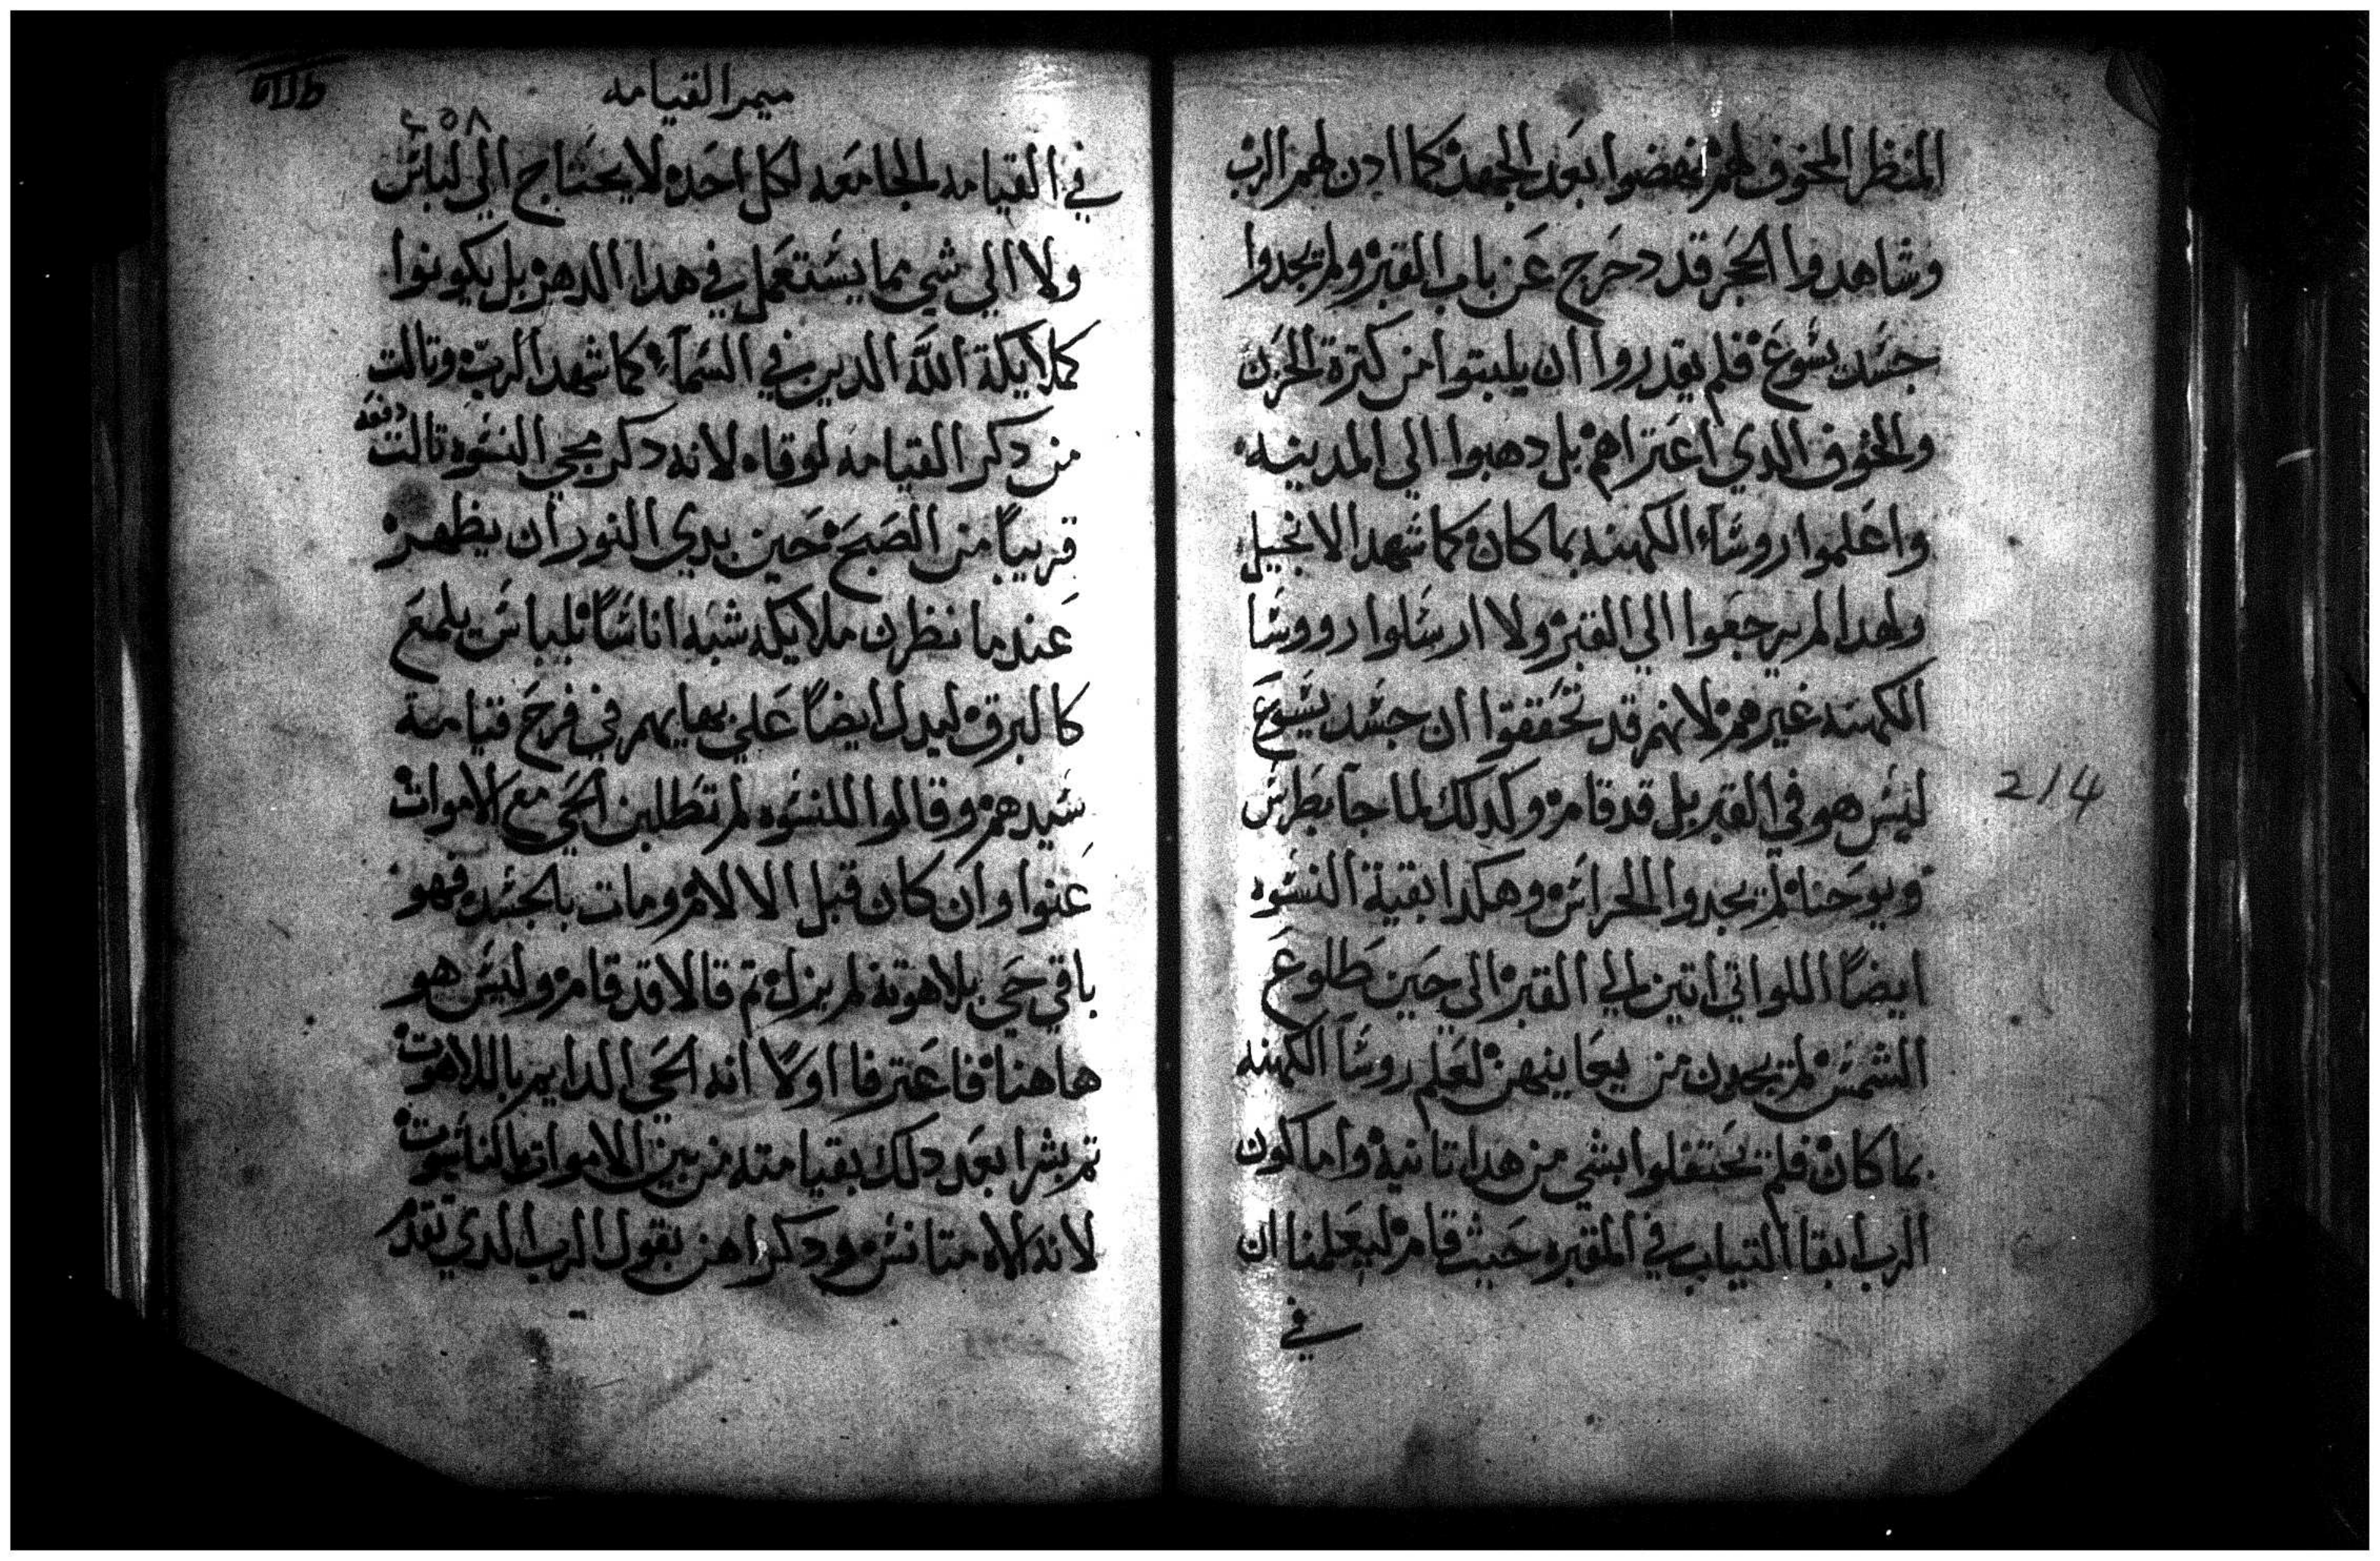 المنظر المخوف لهم نهضوا بعد الجهد كما ادن لهم الرب
وشاهدوا الحجر قد دحرج عن باب المقبر ولم يجدوا
جسد يسوع فلم يقدروا ان يلبتوا من كترة الحزن
والخوف الدي اعتراهم بل دهبوا الي المدينه
واعلموا روسآء الكهنه بما كان كما شهد الانجيل
ولهدا لم يرجعوا الي القبر ولا ارسلوا رووسا
الكهنه غيرهم لانهم قد تحققوا ان جسد يسوع
ليس هو في القبر بل قد قام وكدلك لما جآ بطرس
ويوحنا لم يجدوا الحراس وهكدا بقية النسوه
ايضاً اللواتي اتين الي القبر الي حين طلوع
الشمس لم يجدون من يعاينهن لعلم روسآ الكهنه
بما كان فلم يحتفلوا بشي من هدا تانية واما كون
الرب ابقا التياب في المقبره حيث قام ليعلمنا ان
في
2/4
ميمر القيامه
٤٥٨
في القيامه الجامعه لكل احد لا يحتاج الي لباس
ولا الي شي مما يستعمل في هدا الدهر بل يكونوا
كملايكة الله الدين في السمآء كما شهد الرب وتالت
من دكر القيامه لوقا لانه دكر مجي النسوه تالت دفعه
قريباً من الصبح حين بدي النور ان يظهر
عندما نظرن ملايكه شبه اناساً بلباس يلمع
كالبرق ليدل ايضاً علي بهايهم في فرح قيامة
سيدهم وقالوا للنسوه لم تطلبن الحي مع الاموات
عنوا وان كان قبل الالام ومات بالجسد فهو
باقي حي بلاهوته لم يزل تم قالا قد قام وليس هو
هاهنا فاعترفا اولاً انه الحي الدايم باللاهوت
تم بشرا بعد دلك بقيامته من بين الاموات بالناسوت
لانه الاه متانس ودكراهن بقول الرب الدي تقدم